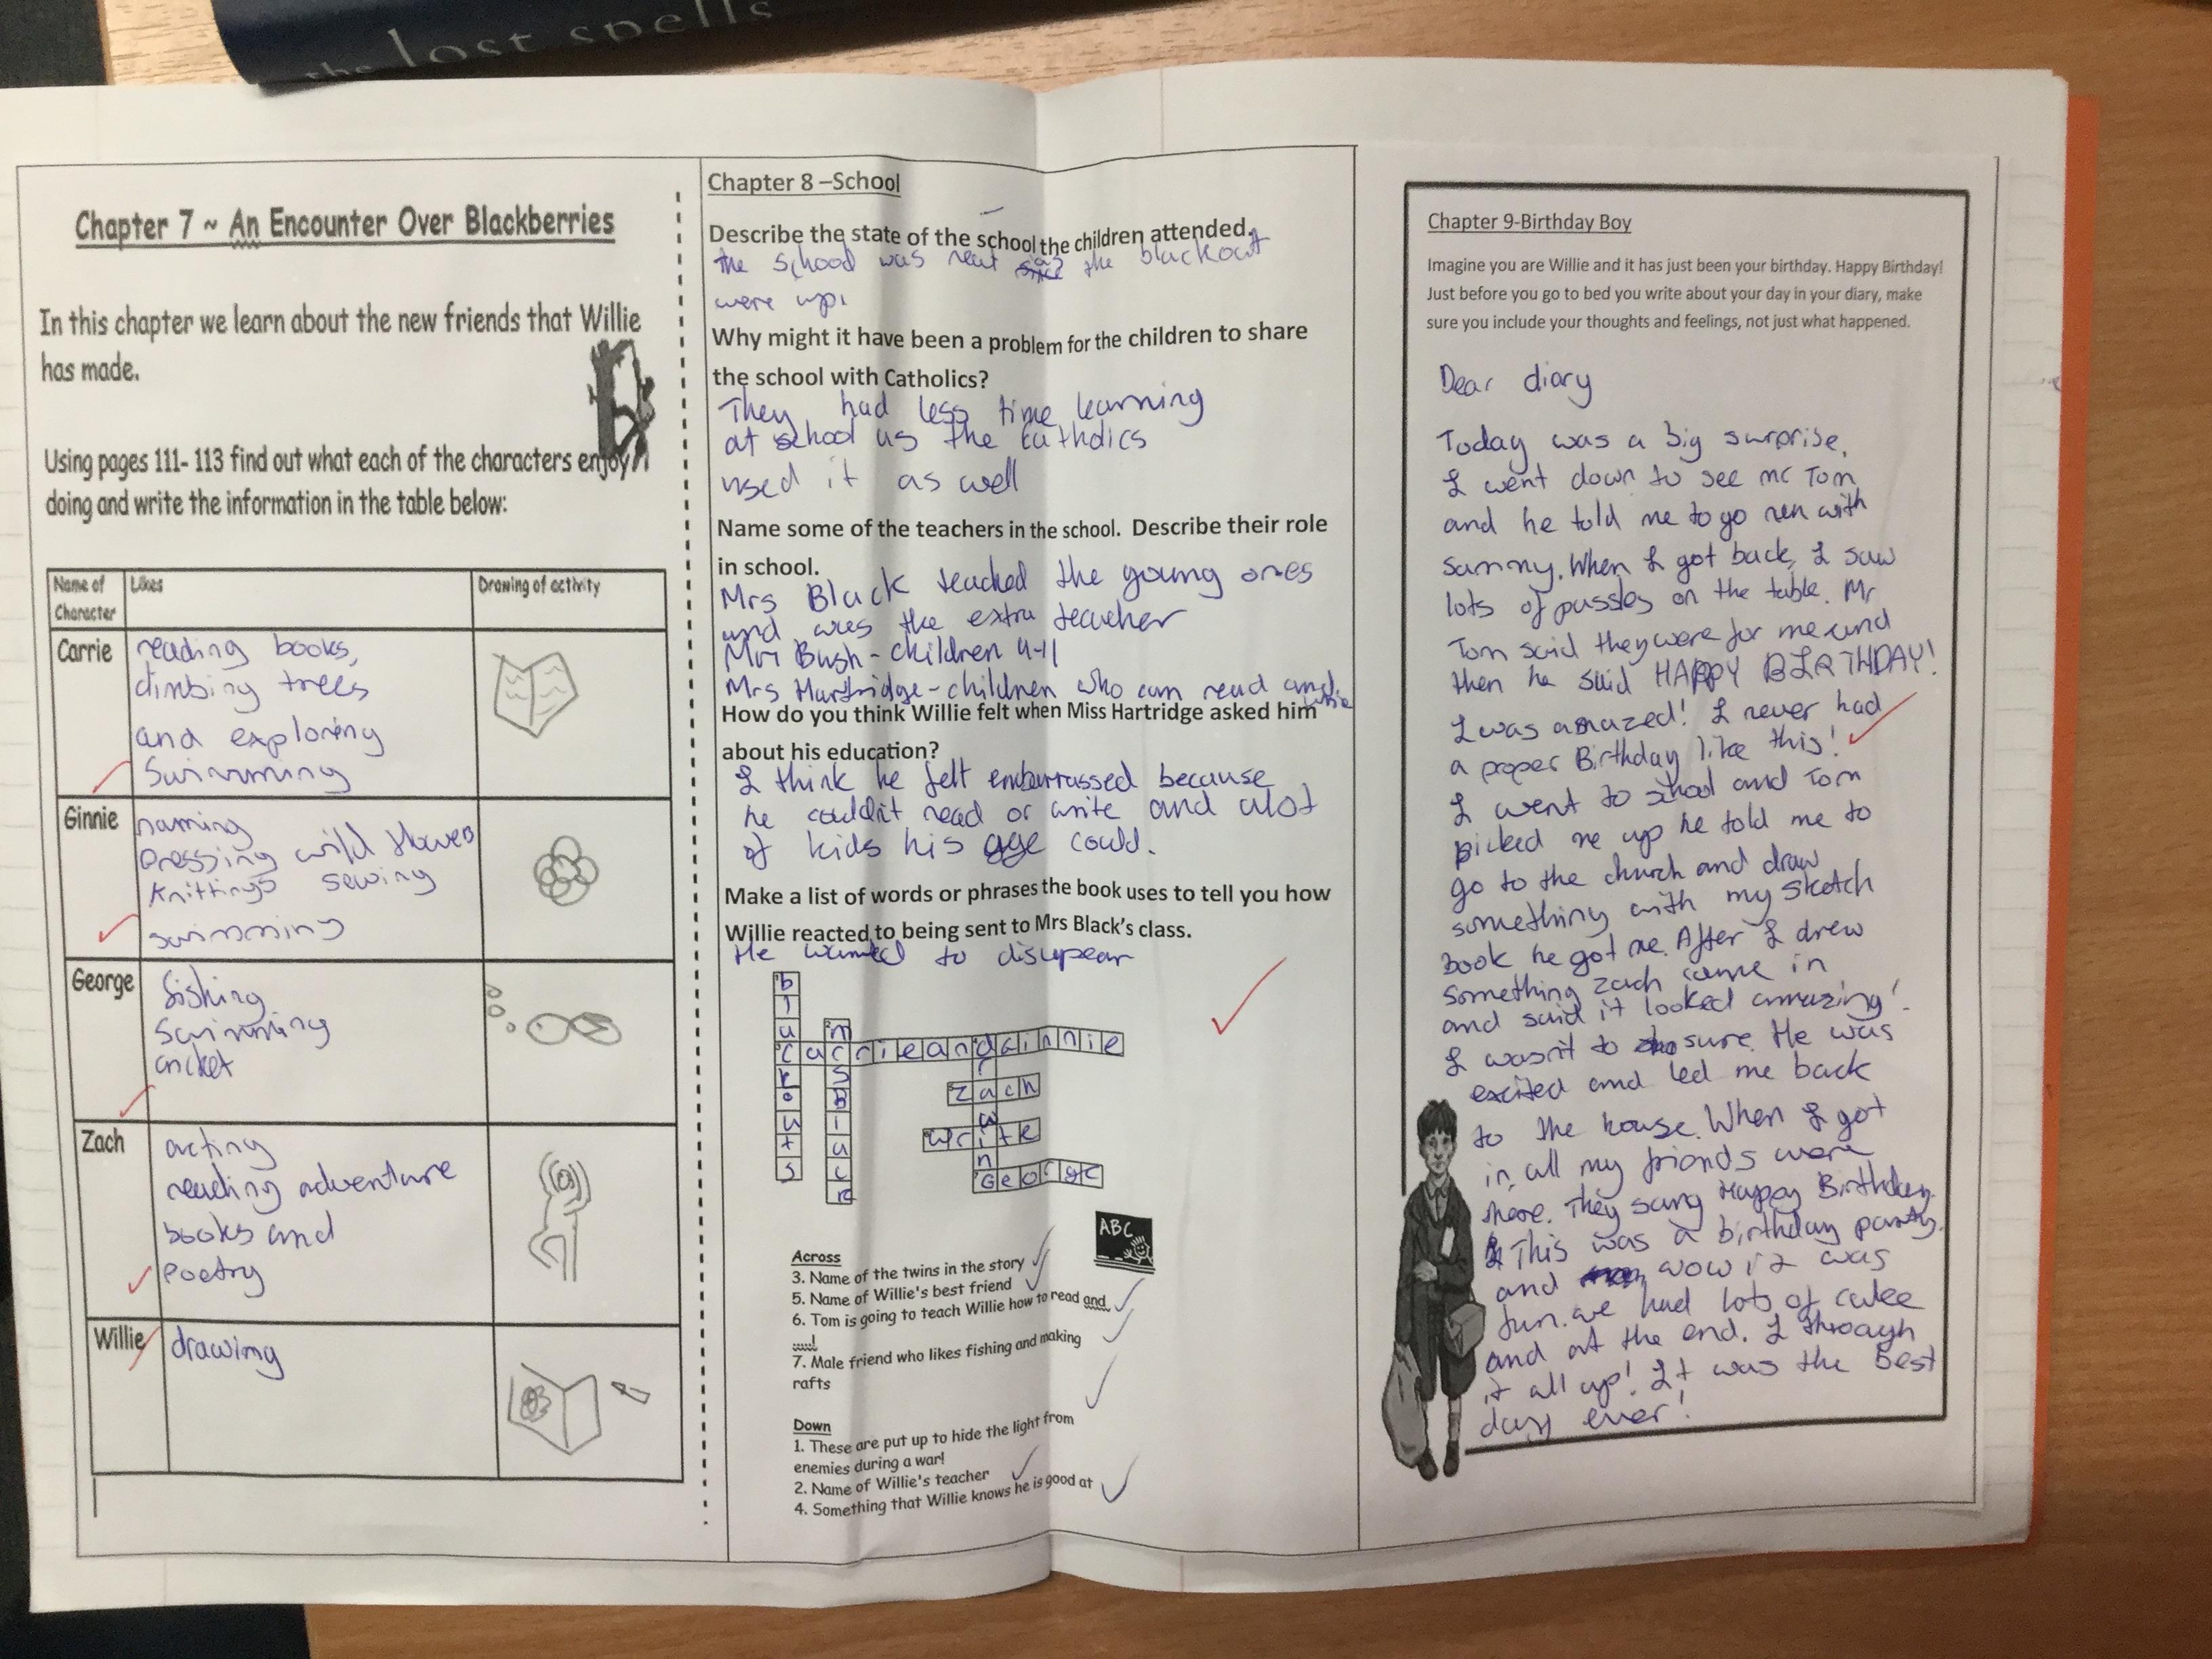 the lost spells
Chapter 7 ~ An Encounter Over Blackberries
In this chapter we learn about the new friends that Willie
has made.
Using pages 111- 113 find out what each of the characters enjoy
doing and write the information in the table below:
Name of Character
Likes
Drawing of activity
Carrie
reading books,
climbing trees
and exploring
Swimming
Ginnie
naming
pressing wild flowers
knittings sewing
swimming
George
fishing
swimming
cricket
Zach
acting
reading adventure
books and
poetry
Willie
drawing
Chapter 8 –School
Describe the state of the school the children attended.
the school was neat the blackout
were up.
Why might it have been a problem for the children to share
the school with Catholics?
They had less time learning
at school as the Catholics
used it as well
Name some of the teachers in the school. Describe their role
in school.
Mrs Black teached the young ones
and was the extra teacher
Mrr Bush - children 4-11
Mrs Hartridge - children who can read and write
How do you think Willie felt when Miss Hartridge asked him
about his education?
I think he felt embarrassed because
he couldn't read or write and alot
of kids his age could.
Make a list of words or phrases the book uses to tell you how
Willie reacted to being sent to Mrs Black's class.
He wanted to disapear
blackouts
mrsBlack
carrieandGinnie
drawing
Zach
write
George
ABC
Across
3. Name of the twins in the story
5. Name of Willie's best friend
6. Tom is going to teach Willie how to read and
......!
7. Male friend who likes fishing and making
rafts
Down
1. These are put up to hide the light from
enemies during a war!
2. Name of Willie's teacher
4. Something that Willie knows he is good at
Chapter 9-Birthday Boy
Imagine you are Willie and it has just been your birthday. Happy Birthday!
Just before you go to bed you write about your day in your diary, make
sure you include your thoughts and feelings, not just what happened.
Dear diary
Today was a big surprise.
I went down to see mr Tom
and he told me to go run with
Sammy. When I got back, I saw
lots of pussles on the table. Mr
Tom said they were for me and
then he said HAPPY BIRTHDAY!
I was amazed! I never had
a proper Birthday like this!
I went to school and Tom
picked me up he told me to
go to the church and draw
something with my sketch
book he got me. After I drew
something zach came in
and said it looked amazing!
I wasn't to sure. He was
excited and led me back
to the house. When I got
in, all my friends were
there. They sang Happy Birthday.
This was a birthday party.
and wow it was
fun. we had lots of cake
and at the end. I through
it all up! It was the best
day ever!